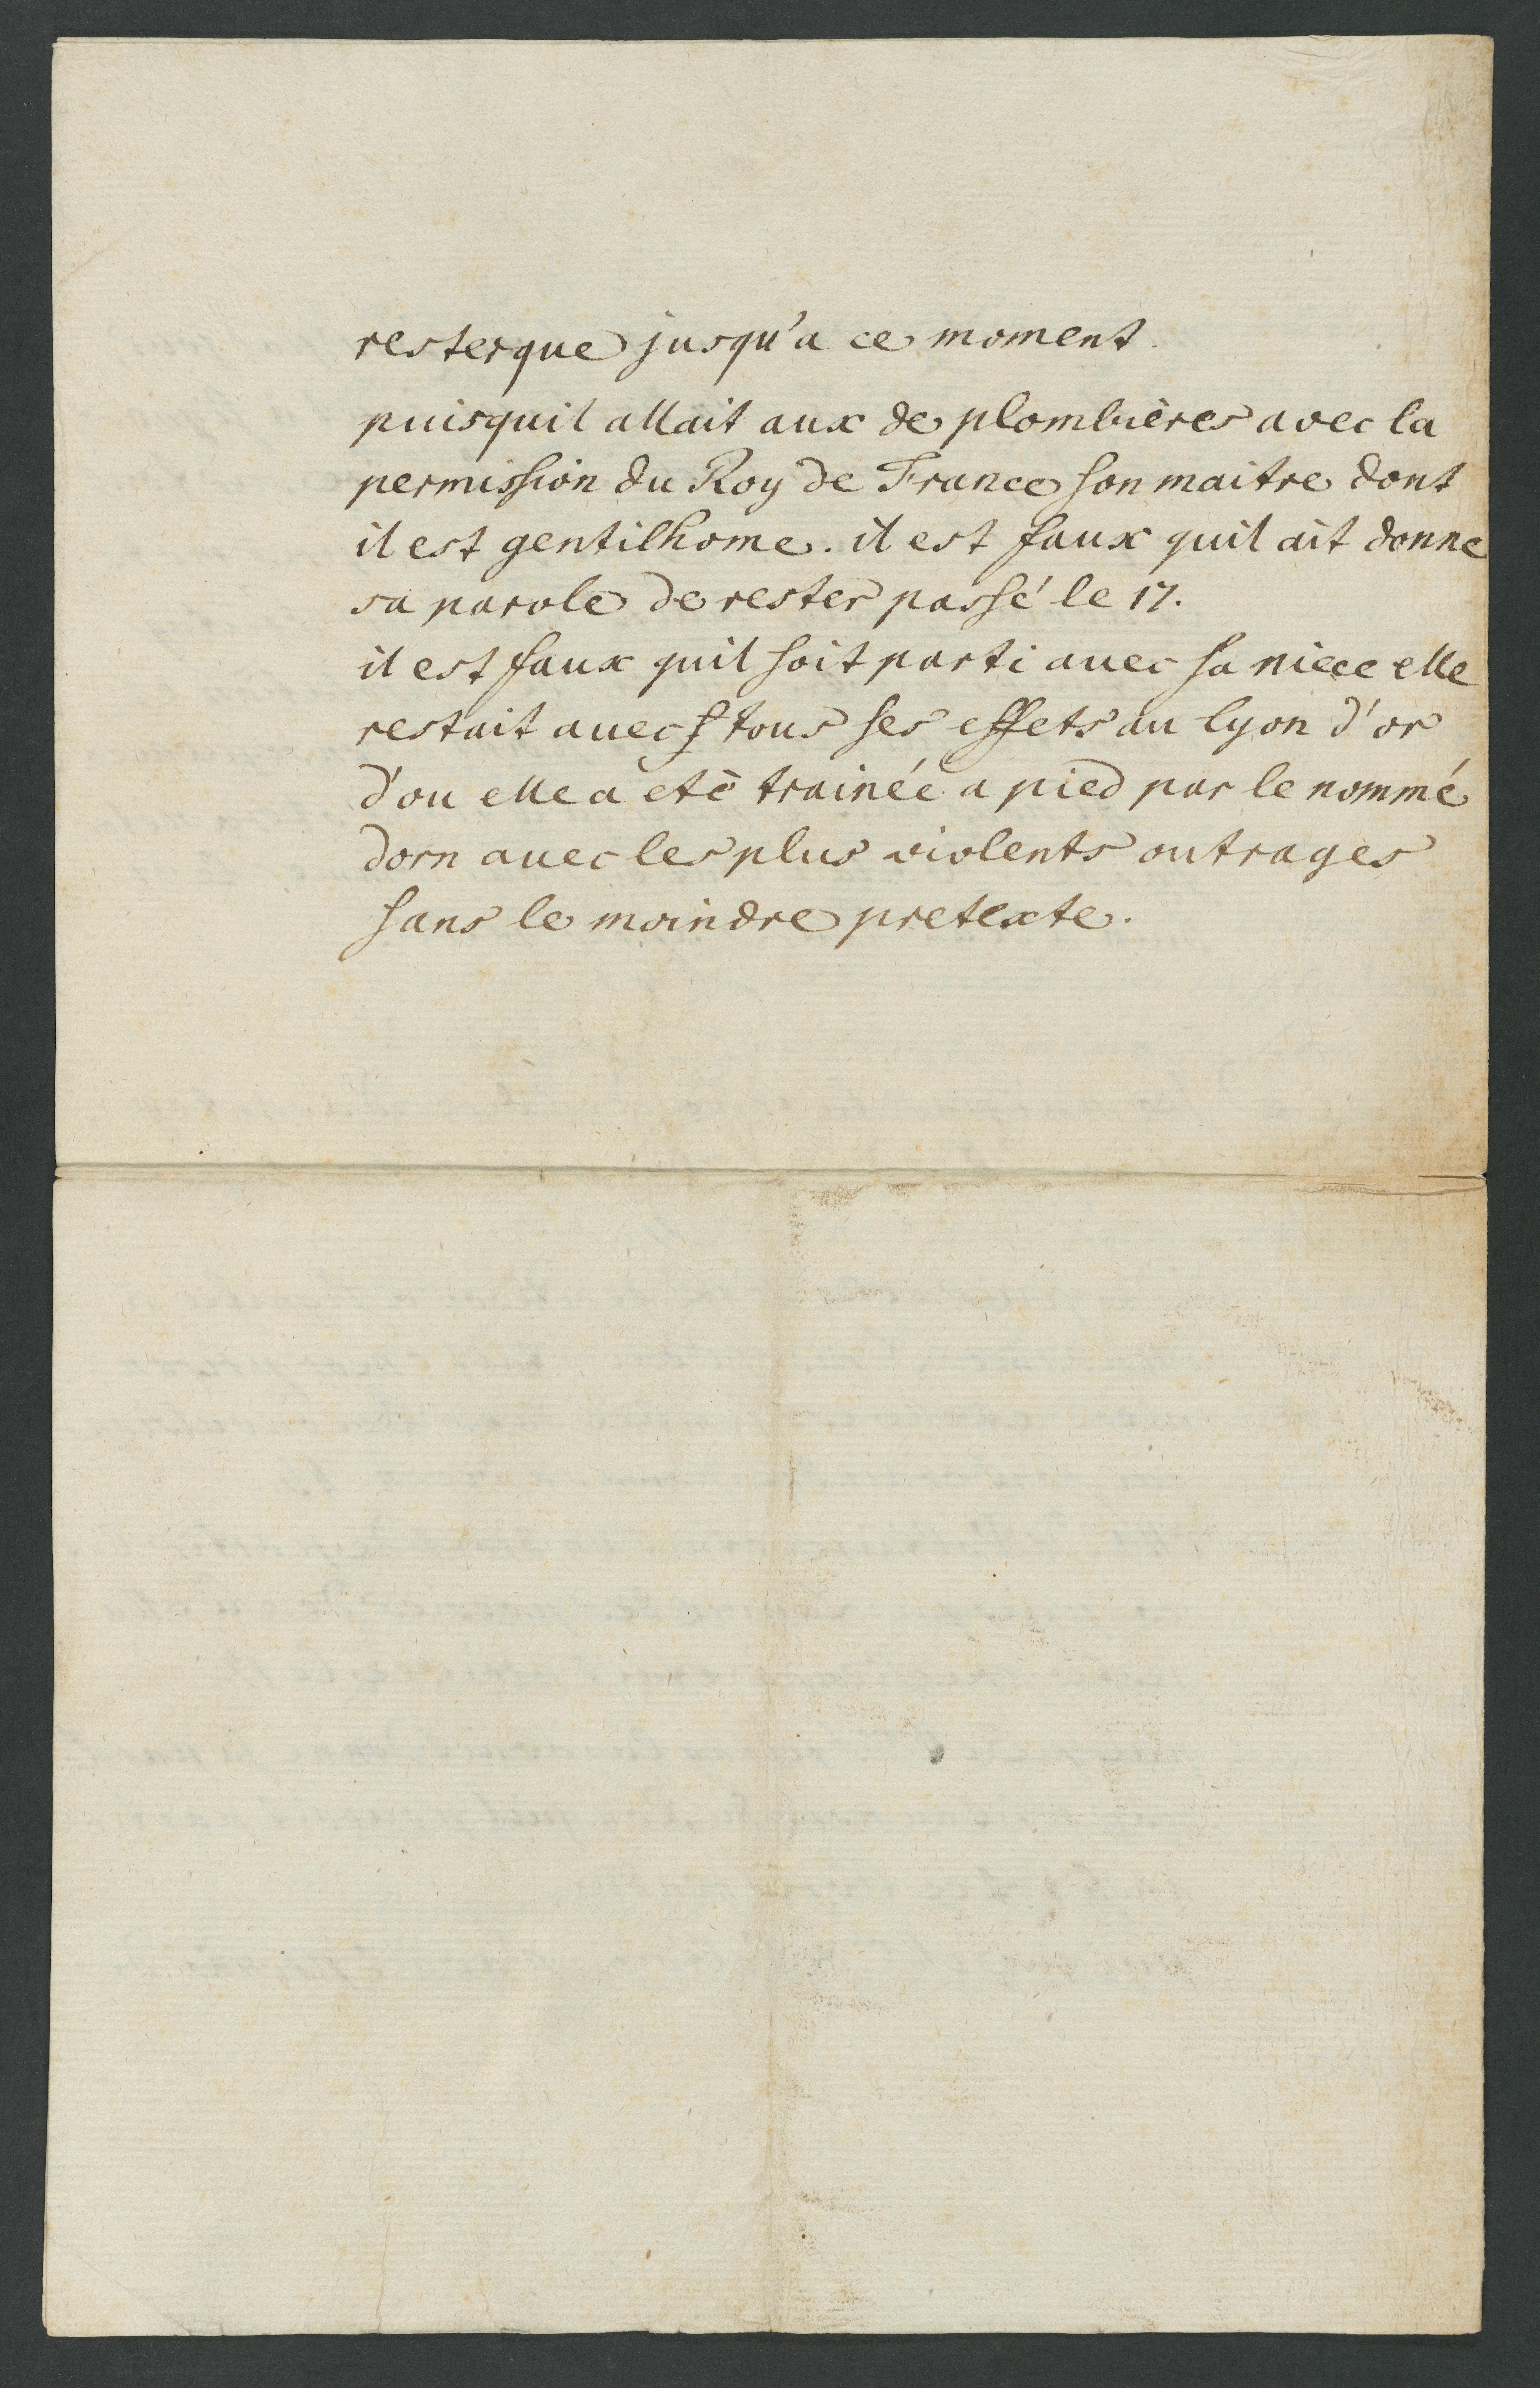 rester que jusqu'a ce moment.
puisquil allait aux de plombières avec la
permission du Roy de France son maitre dont
il est gentilhome. il est faux quil ait donne
sa parole de rester passé le 17.
il est faux quil soit parti avec sa niece elle
restait avec tous ses effets au lyon d'or
d'ou elle a eté trainée a pied par le nommé
dorn avec les plus violents outrages
sans le moindre pretexte.